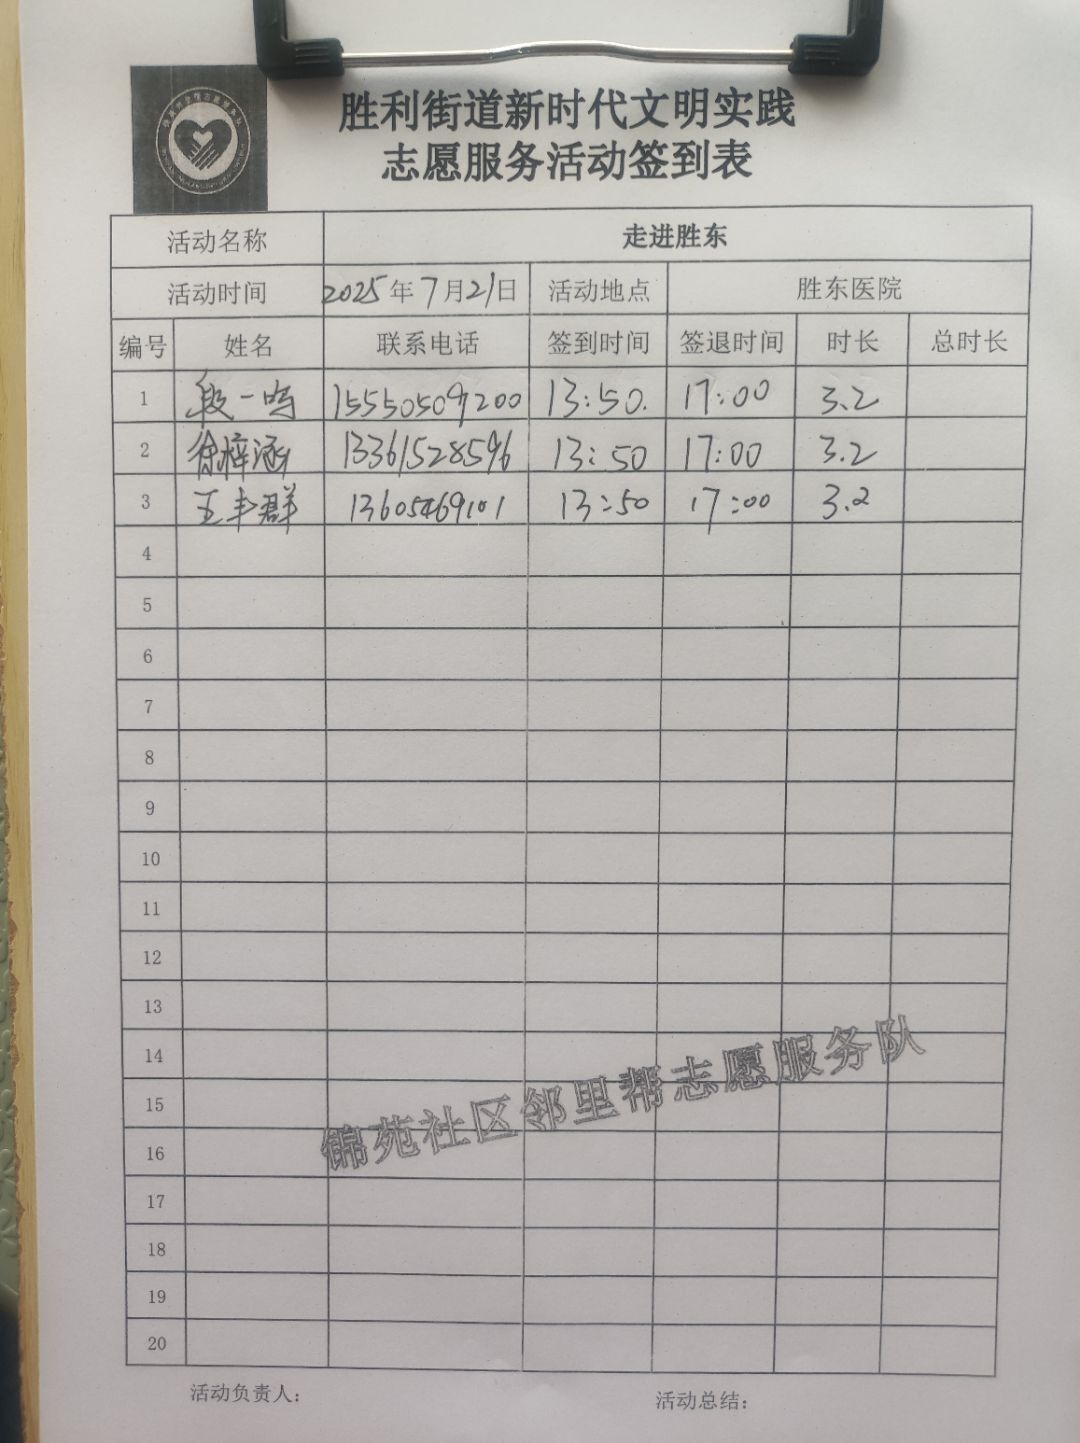 胜利街道新时代文明实践
志愿服务活动签到表
活动名称 走进胜东
活动时间 2025年7月21日 活动地点 胜东医院
编号 姓名 联系电话 签到时间 签退时间 时长 总时长
1 段一鸣 15550509200 13:50. 17:00 3.2
2 徐梓涵 13361528596 13:50 17:00 3.2
3 王丰群 13605469101 13:50 17:00 3.2
4
5
6
7
8
9
10
11
12
13
14
15
16
17
18
19
20
锦苑社区邻里帮志愿服务队
活动负责人: 活动总结: